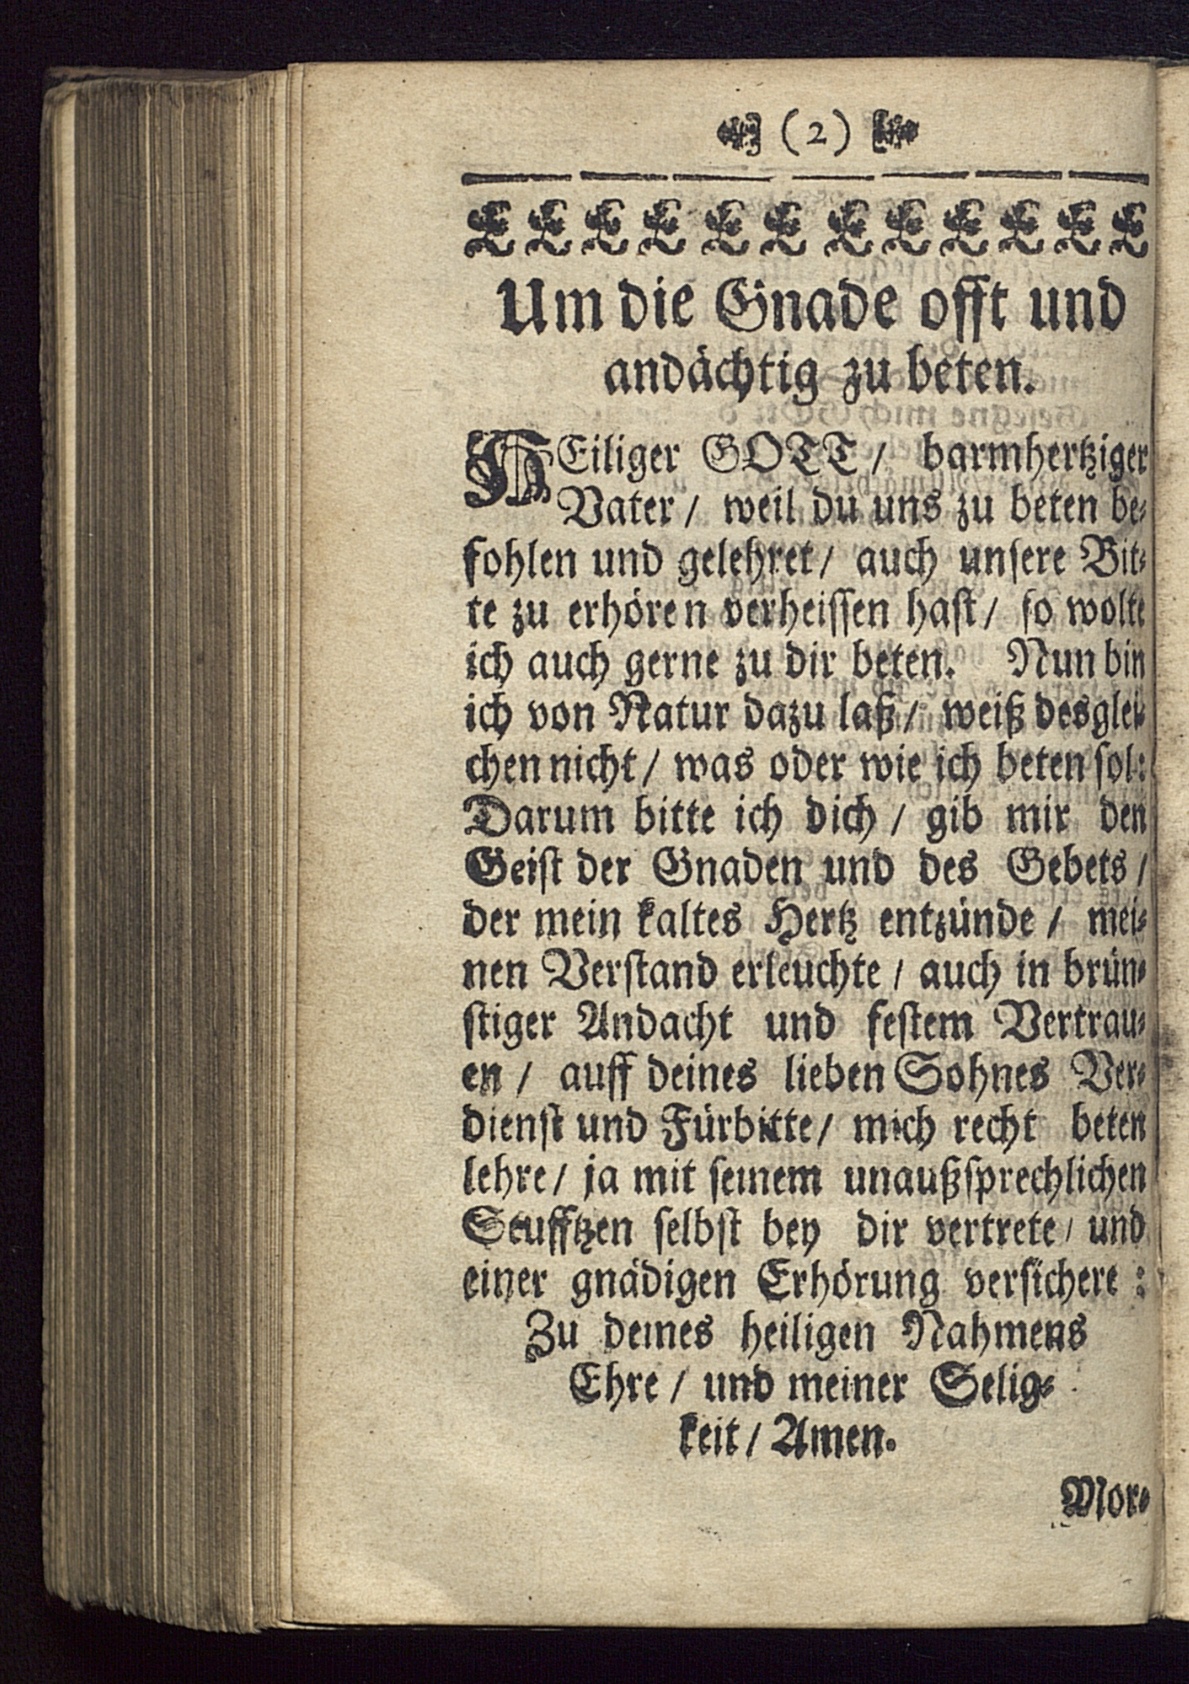 (2)
Um die Gnade offt und
andächtig zu beten.
HEiliger GOTT / barmhertziger
Vater / weil du uns zu beten be-
fohlen und gelehret / auch unsere Bit-
te zu erhören verheissen hast / so wolte
ich auch gerne zu dir beten. Nun bin
ich von Natur dazu laß / weiß desglei-
chen nicht / was oder wie ich beten sol:
Darum bitte ich dich / gib mir den
Geist der Gnaden und des Gebets /
der mein kaltes Hertz entzünde / mei-
nen Verstand erleuchte / auch in brün-
stiger Andacht und festem Vertrau-
en / auff deines lieben Sohnes Ver-
dienst und Fürbitte / mich recht beten
lehre / ja mit seinem unaußsprechlichen
Seufftzen selbst bey dir vertrete / und
einer gnädigen Erhörung versichere :
Zu deines heiligen Nahmens
Ehre / und meiner Selig-
keit / Amen.
Mor-